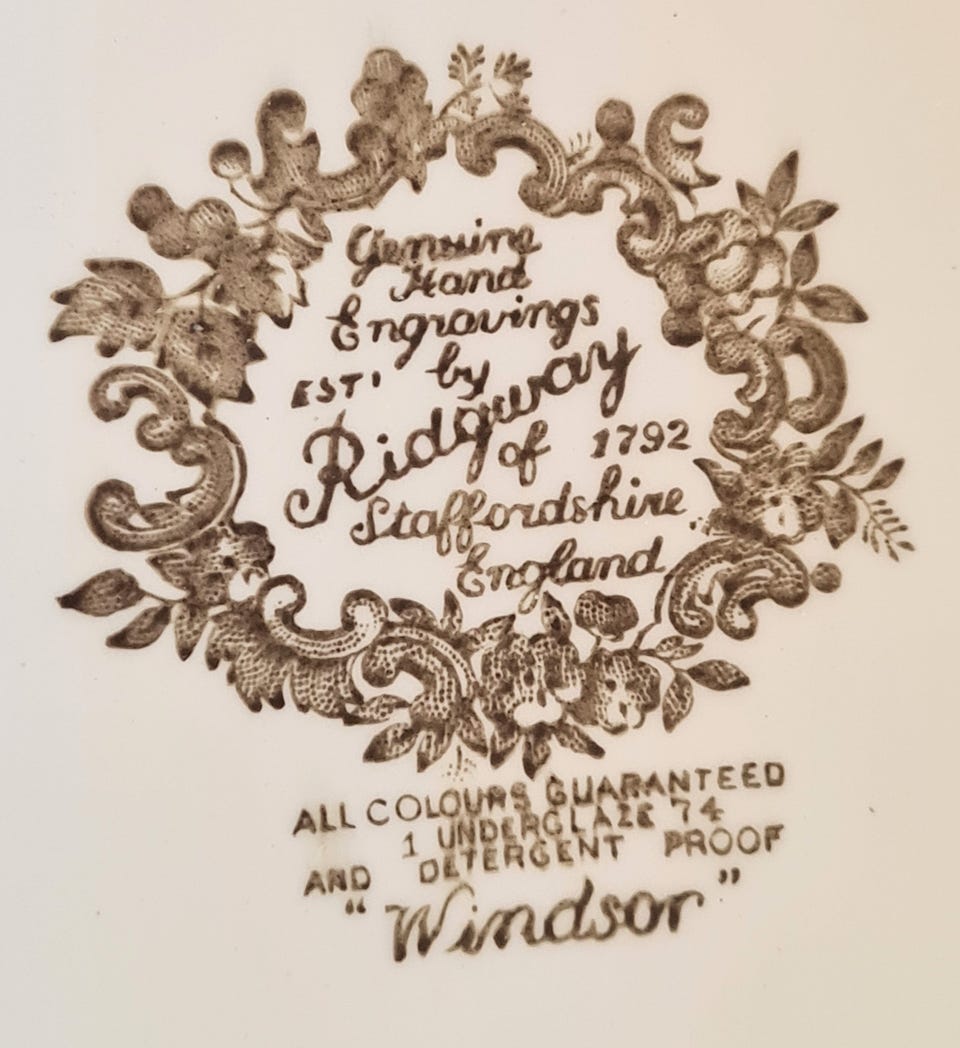 Genuine
Hand
Engravings
by
EST'
Ridgway
of 1792
Staffordshire
England
ALL COLOURS GUARANTEED
1 UNDERGLAZE 74
AND DETERGENT PROOF
"Windsor"